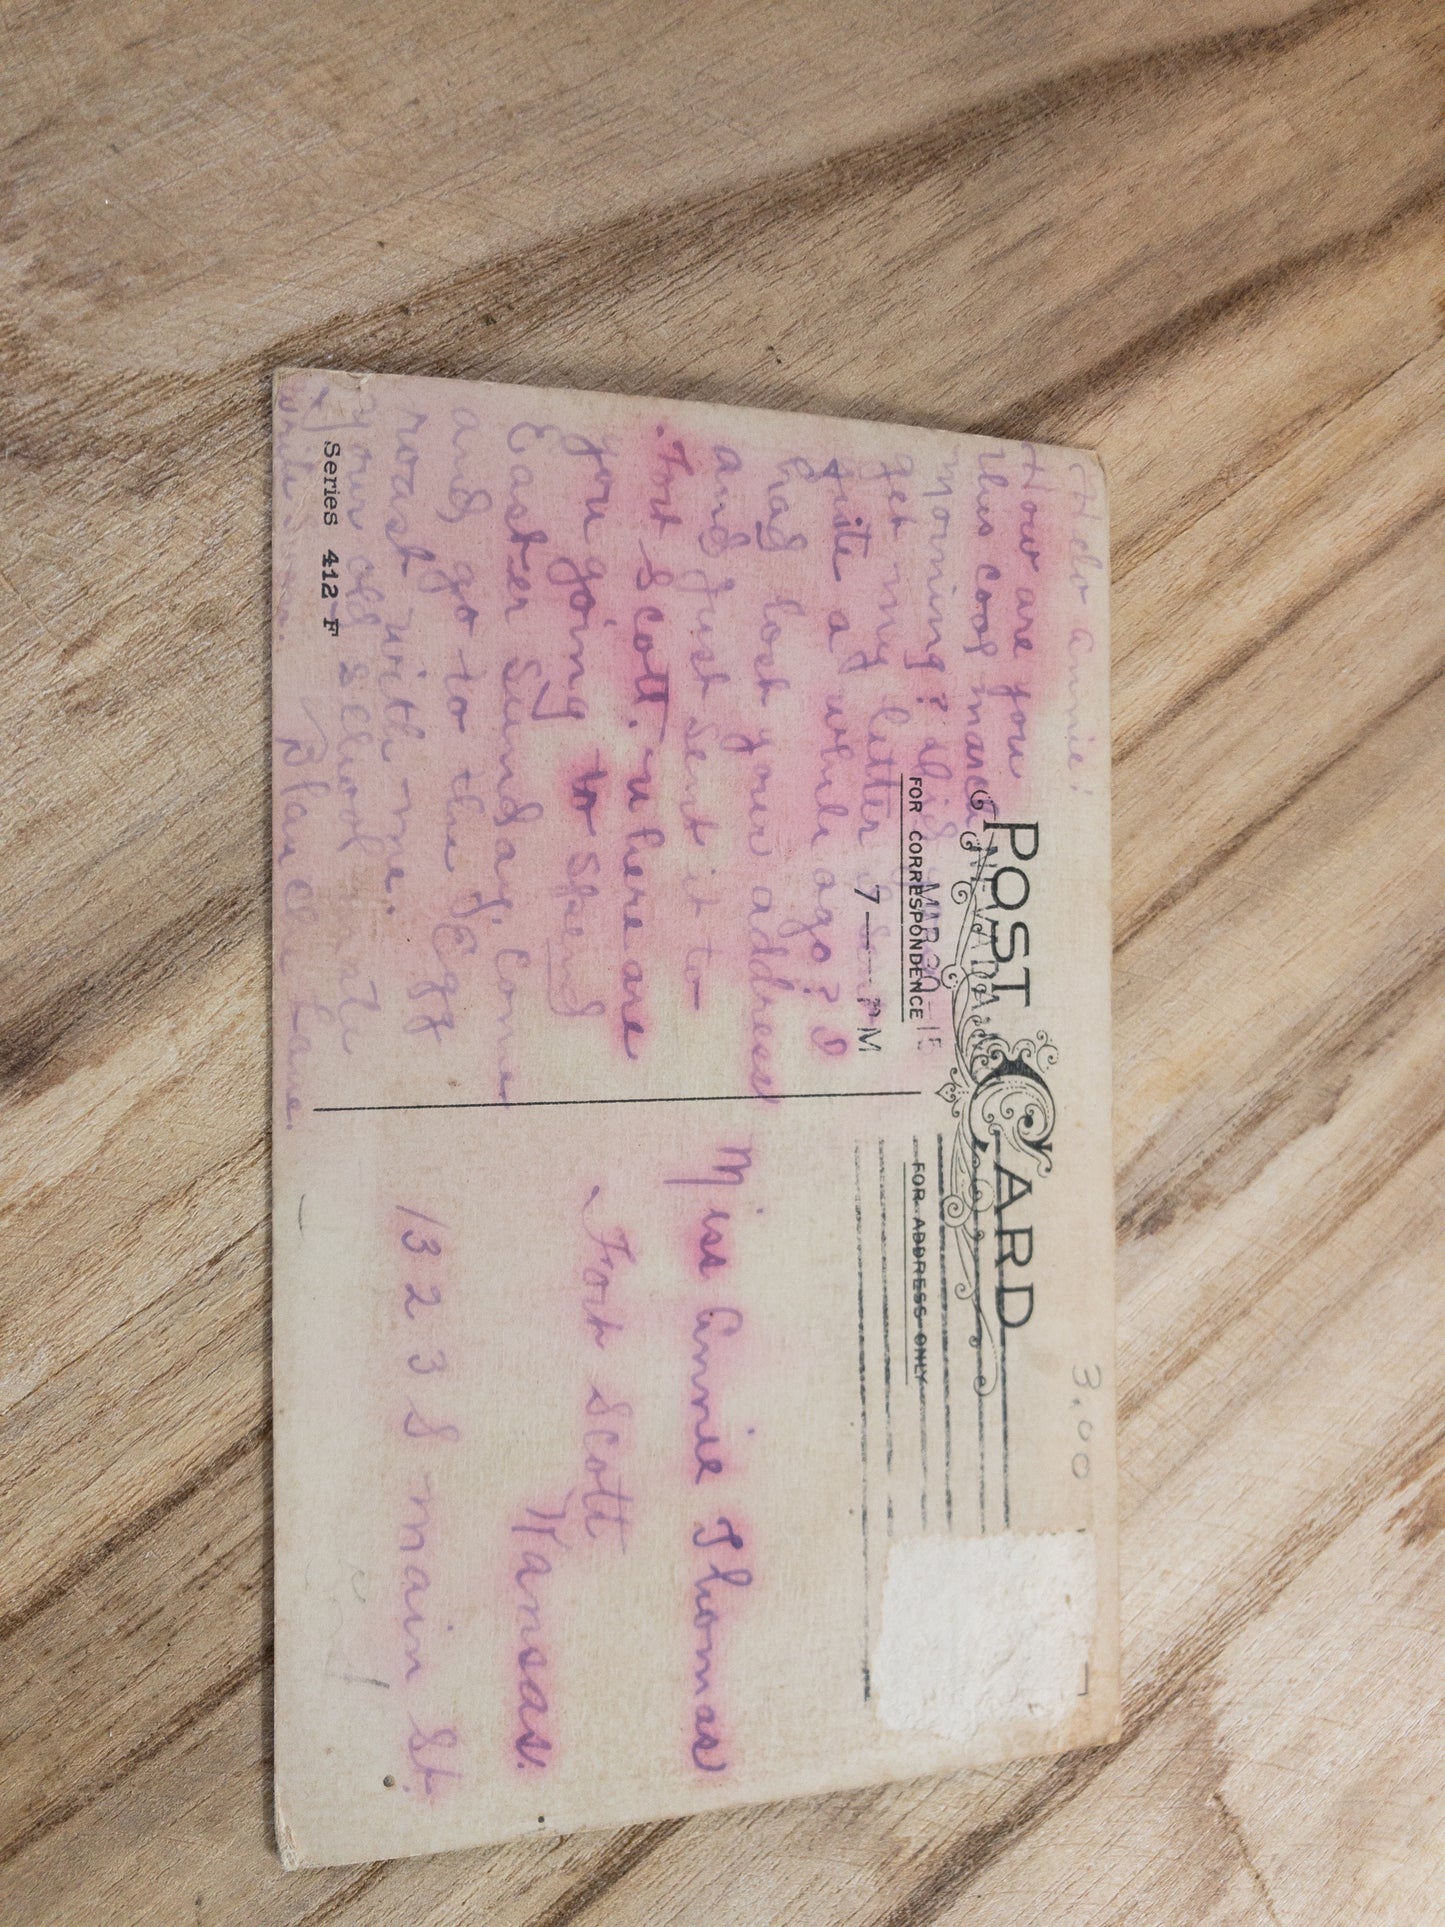 3.00
POST CARD
FOR CORRESPONDENCE
FOR ADDRESS ONLY
NEVADA
MAR 30
7 — PM
Helo Annie:
How are you
this cool
morning? did you
get my letter I sent
quite a while ago? I
had lost your address
and just sent it to
Fort Scott. where are
you going to spend
Easter Sunday, Come
and go to the Egg
roast with me.
your old school mate
Write soon. Blanche Lane.
Series 412 F
Miss Annie Thomas
Fort Scott
Kansas.
1323 S main St.